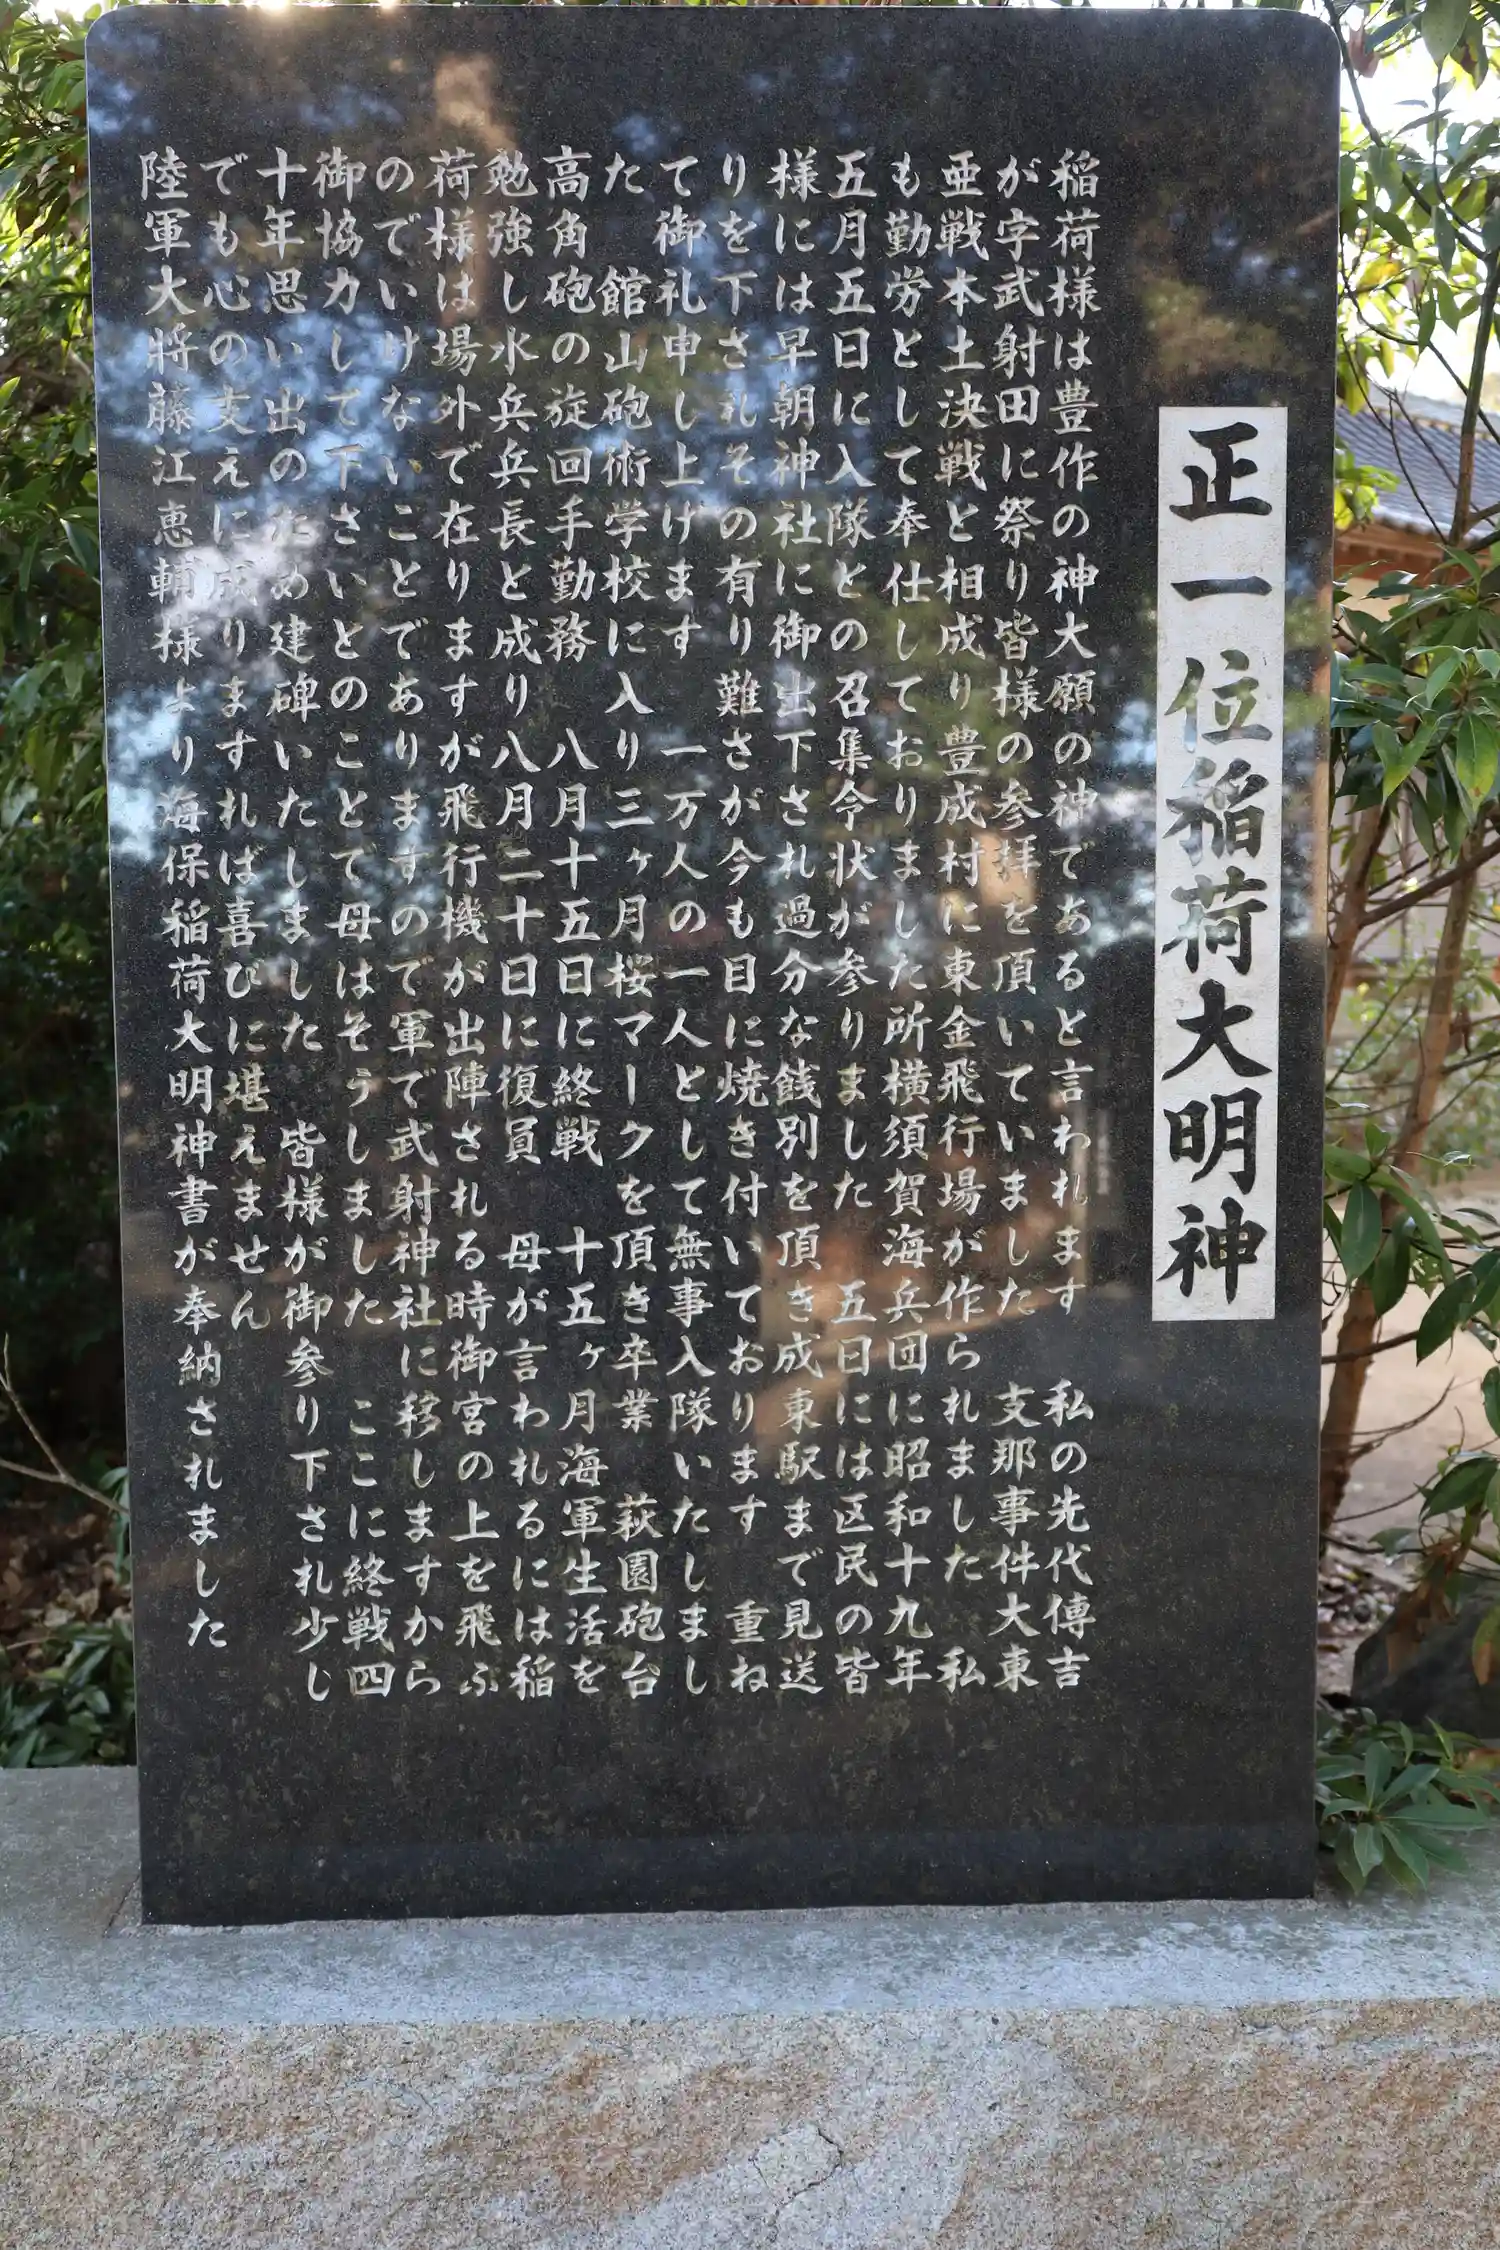 正一位稲荷大明神
稲荷様は豊作の神大願の神であると言われます　私の先代傳吉
が字武射田に祭り皆様の参拝を頂いていました　支那事件大東
亜戦本土決戦と相成り豊成村に東金飛行場が作られました　私
も勤労として奉仕しておりました所横須賀海兵団に昭和十九年
五月五日に入隊との召集令状が参りました　五日には区民の皆
様には早朝神社に御出下され過分な餞別を頂き成東駅まで見送
りを下されその有り難さが今も目に焼き付いております　重ね
て御礼申し上げます　一万人の一人として無事入隊いたしまし
た　館山砲術学校に入り三ヶ月桜マークを頂き卒業　萩園砲台
高角砲の旋回手勤務　八月十五日に終戦　十五ヶ月海軍生活を
勉強し水兵兵長と成り八月二十日に復員　母が言われるには稲
荷様は場外で在りますが飛行機が出陣される時御宮の上を飛ぶ
のでいけないことでありますので軍で武射神社に移しますから
御協力して下さいとのことで母はそうしました　ここに終戦四
十年思い出のため建碑いたしました　皆様が御参り下され少し
でも心の支えに成りますれば喜びに堪えません
陸軍大将藤江恵輔様より海保稲荷大明神書が奉納されました